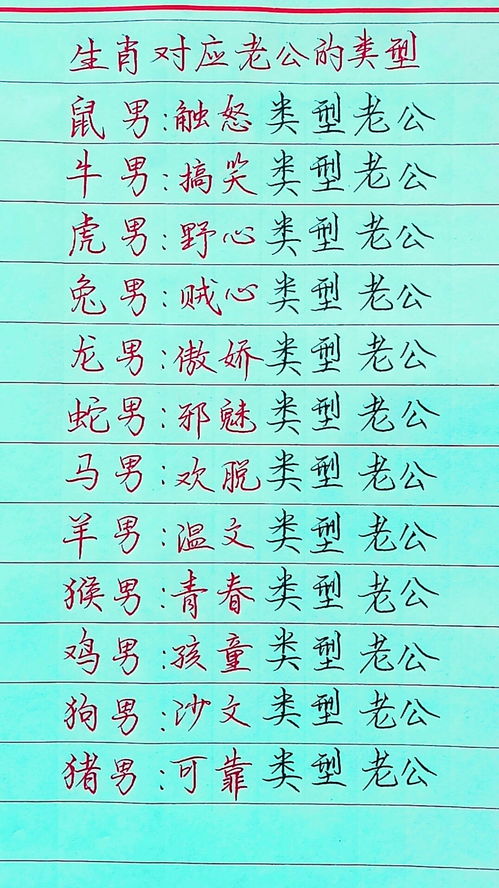 生肖对应老公的类型
鼠男:触怒类型老公
牛男:搞笑类型老公
虎男:野心类型老公
兔男:贼心类型老公
龙男:傲娇类型老公
蛇男:邪魅类型老公
马男:欢脱类型老公
羊男:温文类型老公
猴男:青春类型老公
鸡男:孩童类型老公
狗男:沙文类型老公
猪男:可靠类型老公